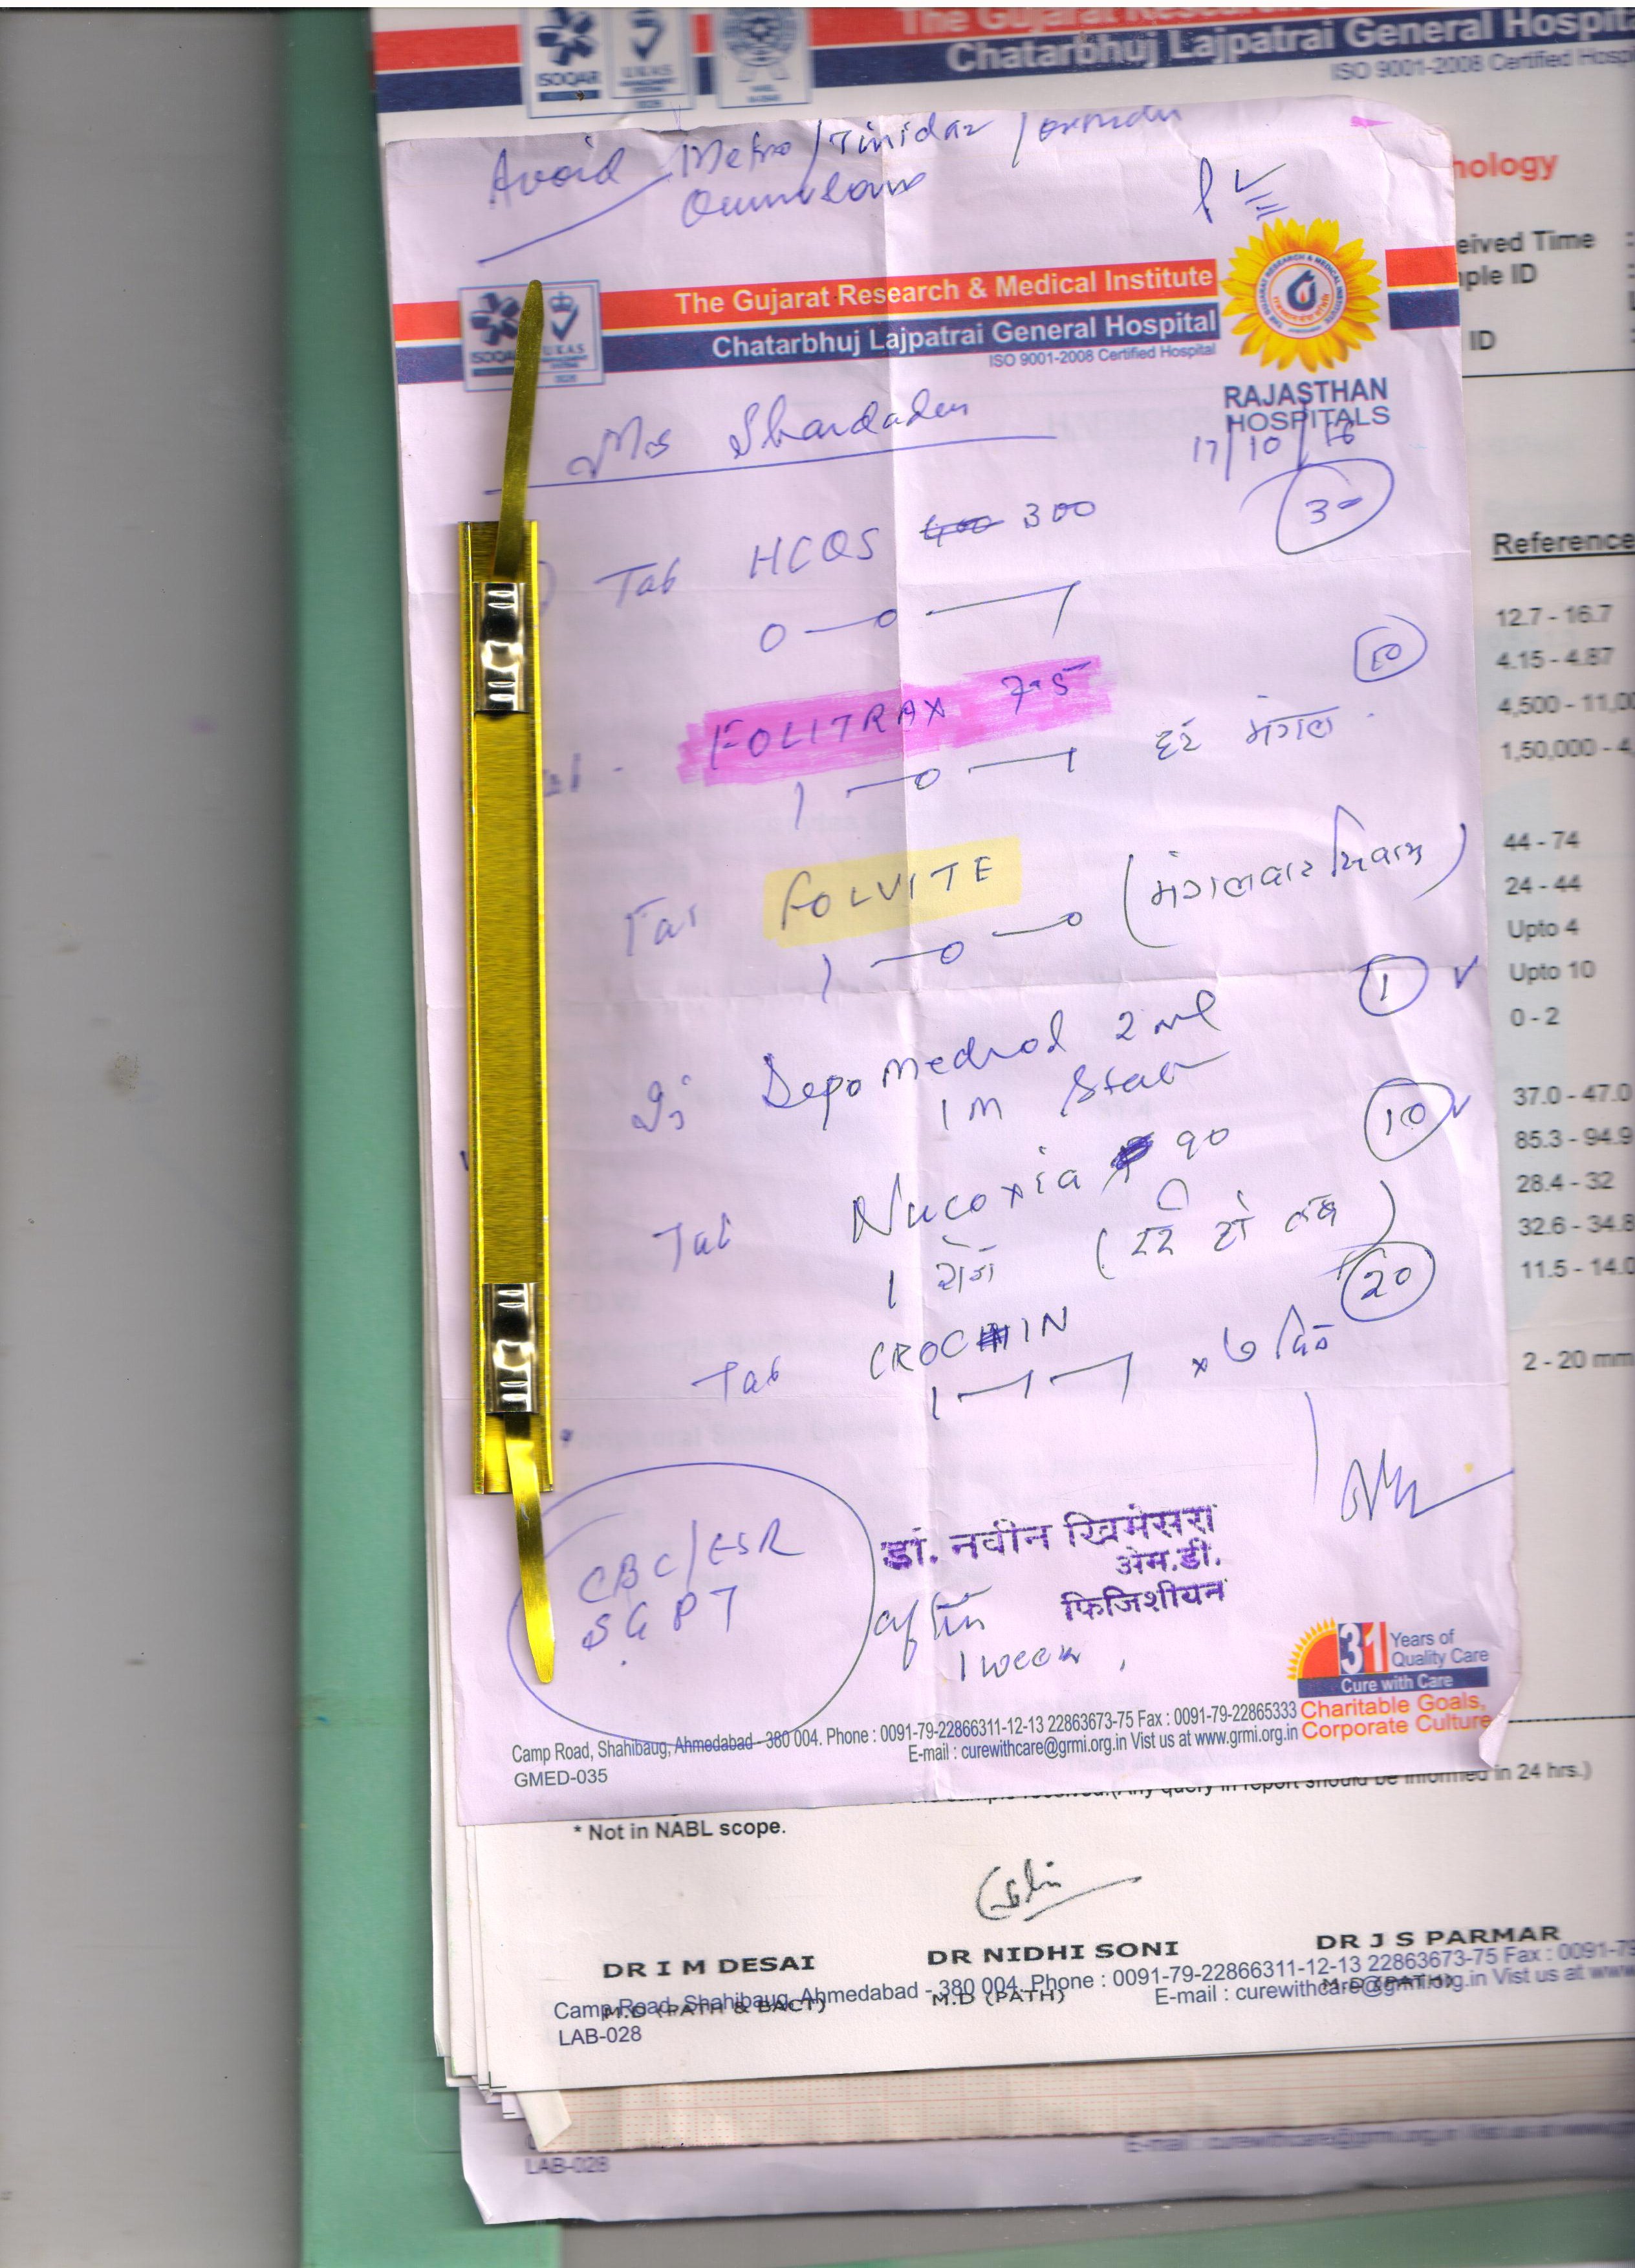 The Gujarat Research
Chatarbhuj Lajpatrai General Hospit
ISO 9001-2008 Certified Hosp
ISOQAR
UKAS
Avoid Metro/Tinidaz/
nology
eived Time :
ple ID :
ID :
The Gujarat Research & Medical Institute
Chatarbhuj Lajpatrai General Hospital
ISO 9001-2008 Certified Hospital
ISOQAR
UKAS
RAJASTHAN
HOSPITALS
Mrs Shardaben
17/10/16
Tab HCQS 300 30
0 — 0 — 1
FOLITRAX 7.5 10
1 — 0 — 1 हर मंगल
Tab FOLVITE (मंगलवार सिवाय)
1 — 0 — 0
1
Inj Depo Medrol 2 ml
IM Stat
Tab Nucoxia 90 10
1 रोज (दर्द हो तब)
20
Tab CROCIN
1 — 1 — 1 x ७ दिन
CBC/ESR
SGPT
after
1 week
डॉ. नवीन खिमेसरा
अेम.डी.
फिजिशीयन
31 Years of
Quality Care
Cure with Care
Charitable Goals,
Corporate Culture
Camp Road, Shahibaug, Ahmedabad - 380 004. Phone : 0091-79-22866311-12-13 22863673-75 Fax : 0091-79-22865333
E-mail : curewithcare@grmi.org.in Vist us at www.grmi.org.in
GMED-035
Reference
12.7 - 16.7
4.15 - 4.87
4,500 - 11,00
1,50,000 - 4,
44 - 74
24 - 44
Upto 4
Upto 10
0 - 2
37.0 - 47.0
85.3 - 94.9
28.4 - 32
32.6 - 34.8
11.5 - 14.0
2 - 20 mm
(Any query in report should be informed in 24 hrs.)
* Not in NABL scope.
DR I M DESAI
M.D (PATH & BACT)
DR NIDHI SONI
M.D (PATH)
DR J S PARMAR
M.D (PATH)
Camp Road, Shahibaug, Ahmedabad - 380 004. Phone : 0091-79-22866311-12-13 22863673-75 Fax : 0091-79
E-mail : curewithcare@grmi.org.in Vist us at www
LAB-028
LAB-028